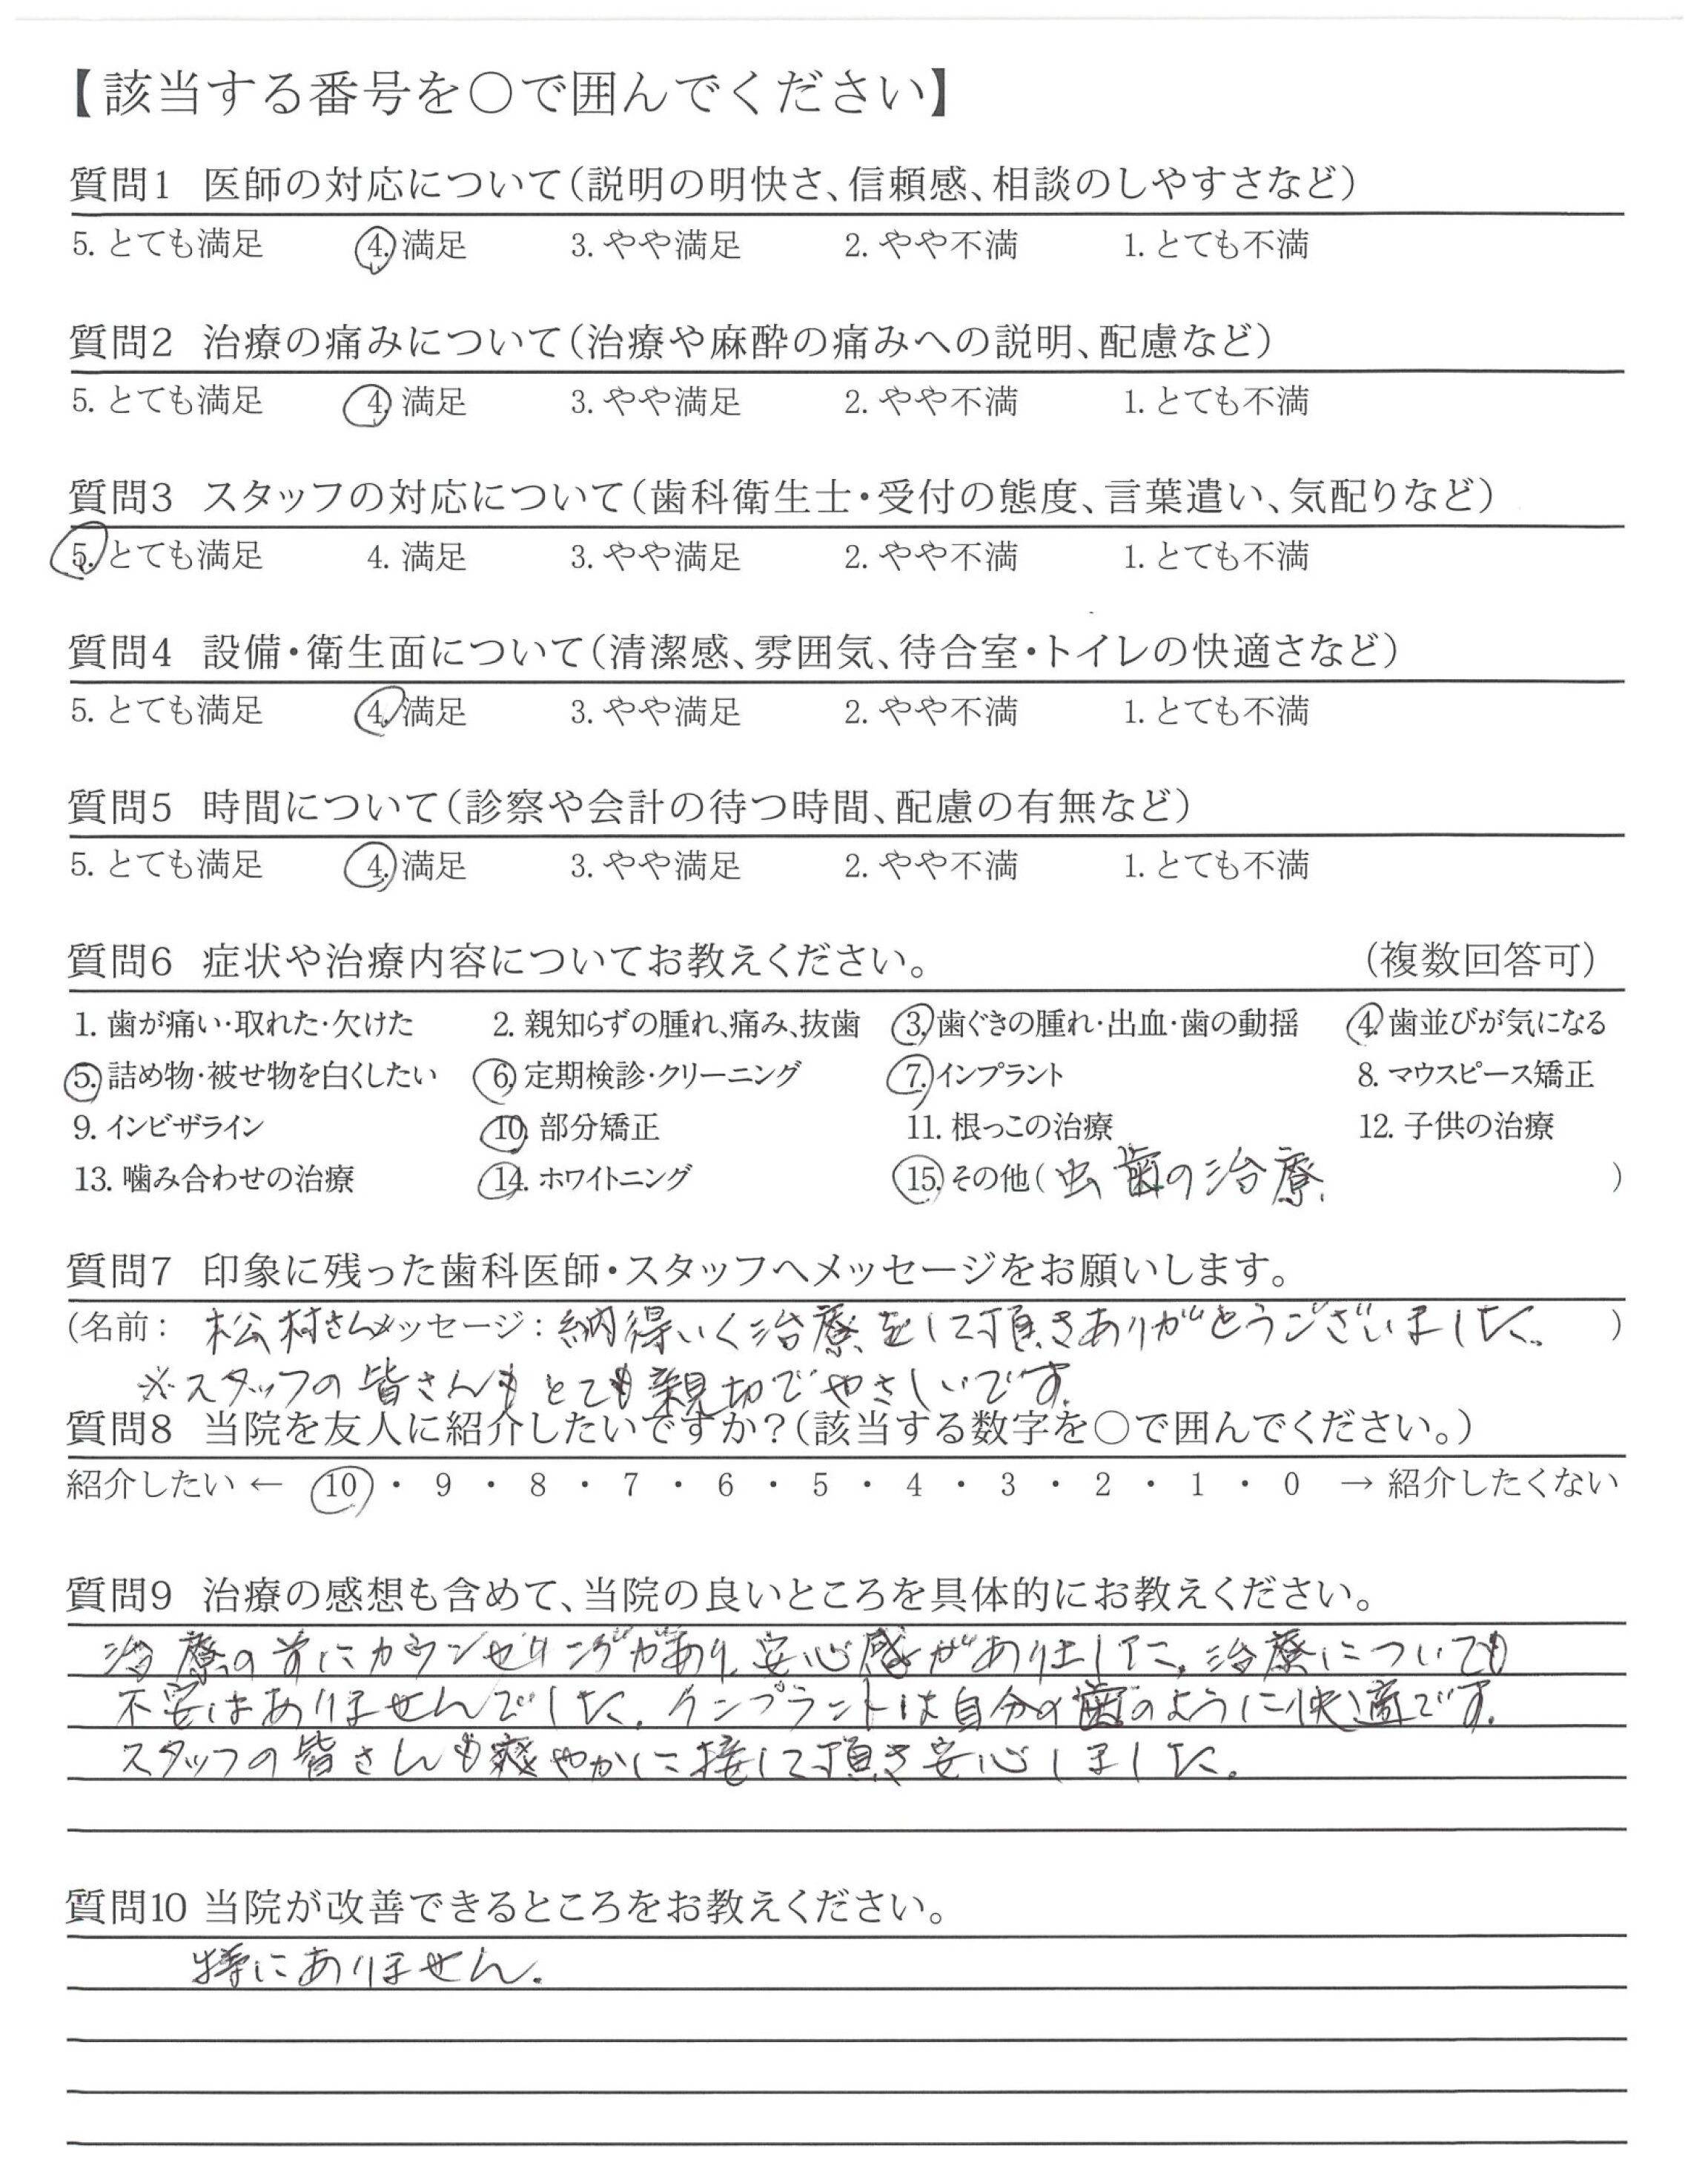 【該当する番号を○で囲んでください】
質問1 医師の対応について(説明の明快さ、信頼感、相談のしやすさなど)
5. とても満足 4. 満足 3. やや満足 2. やや不満 1. とても不満
質問2 治療の痛みについて(治療や麻酔の痛みへの説明、配慮など)
5. とても満足 4. 満足 3. やや満足 2. やや不満 1. とても不満
質問3 スタッフの対応について(歯科衛生士・受付の態度、言葉遣い、気配りなど)
5. とても満足 4. 満足 3. やや満足 2. やや不満 1. とても不満
質問4 設備・衛生面について(清潔感、雰囲気、待合室・トイレの快適さなど)
5. とても満足 4. 満足 3. やや満足 2. やや不満 1. とても不満
質問5 時間について(診察や会計の待つ時間、配慮の有無など)
5. とても満足 4. 満足 3. やや満足 2. やや不満 1. とても不満
質問6 症状や治療内容についてお教えください。 (複数回答可)
1. 歯が痛い・取れた・欠けた 2. 親知らずの腫れ、痛み、抜歯 3. 歯ぐきの腫れ・出血・歯の動揺 4. 歯並びが気になる
5. 詰め物・被せ物を白くしたい 6. 定期検診・クリーニング 7. インプラント 8. マウスピース矯正
9. インビザライン 10. 部分矯正 11. 根っこの治療 12. 子供の治療
13. 噛み合わせの治療 14. ホワイトニング 15. その他(虫歯の治療. )
質問7 印象に残った歯科医師・スタッフへメッセージをお願いします。
(名前: 松村さん メッセージ: 納得いく治療をして頂きありがとうございました。 )
※スタッフの皆さんもとても親切でやさしいです。
質問8 当院を友人に紹介したいですか?(該当する数字を○で囲んでください。)
紹介したい ← 10 ・ 9 ・ 8 ・ 7 ・ 6 ・ 5 ・ 4 ・ 3 ・ 2 ・ 1 ・ 0 → 紹介したくない
質問9 治療の感想も含めて、当院の良いところを具体的にお教えください。
治療の前にカウンセリングがあり、安心感がありました。治療についても
不安はありませんでした。インプラントは自分の歯のように快適です。
スタッフの皆さんも爽やかに接して頂き安心しました。
質問10 当院が改善できるところをお教えください。
特にありません。